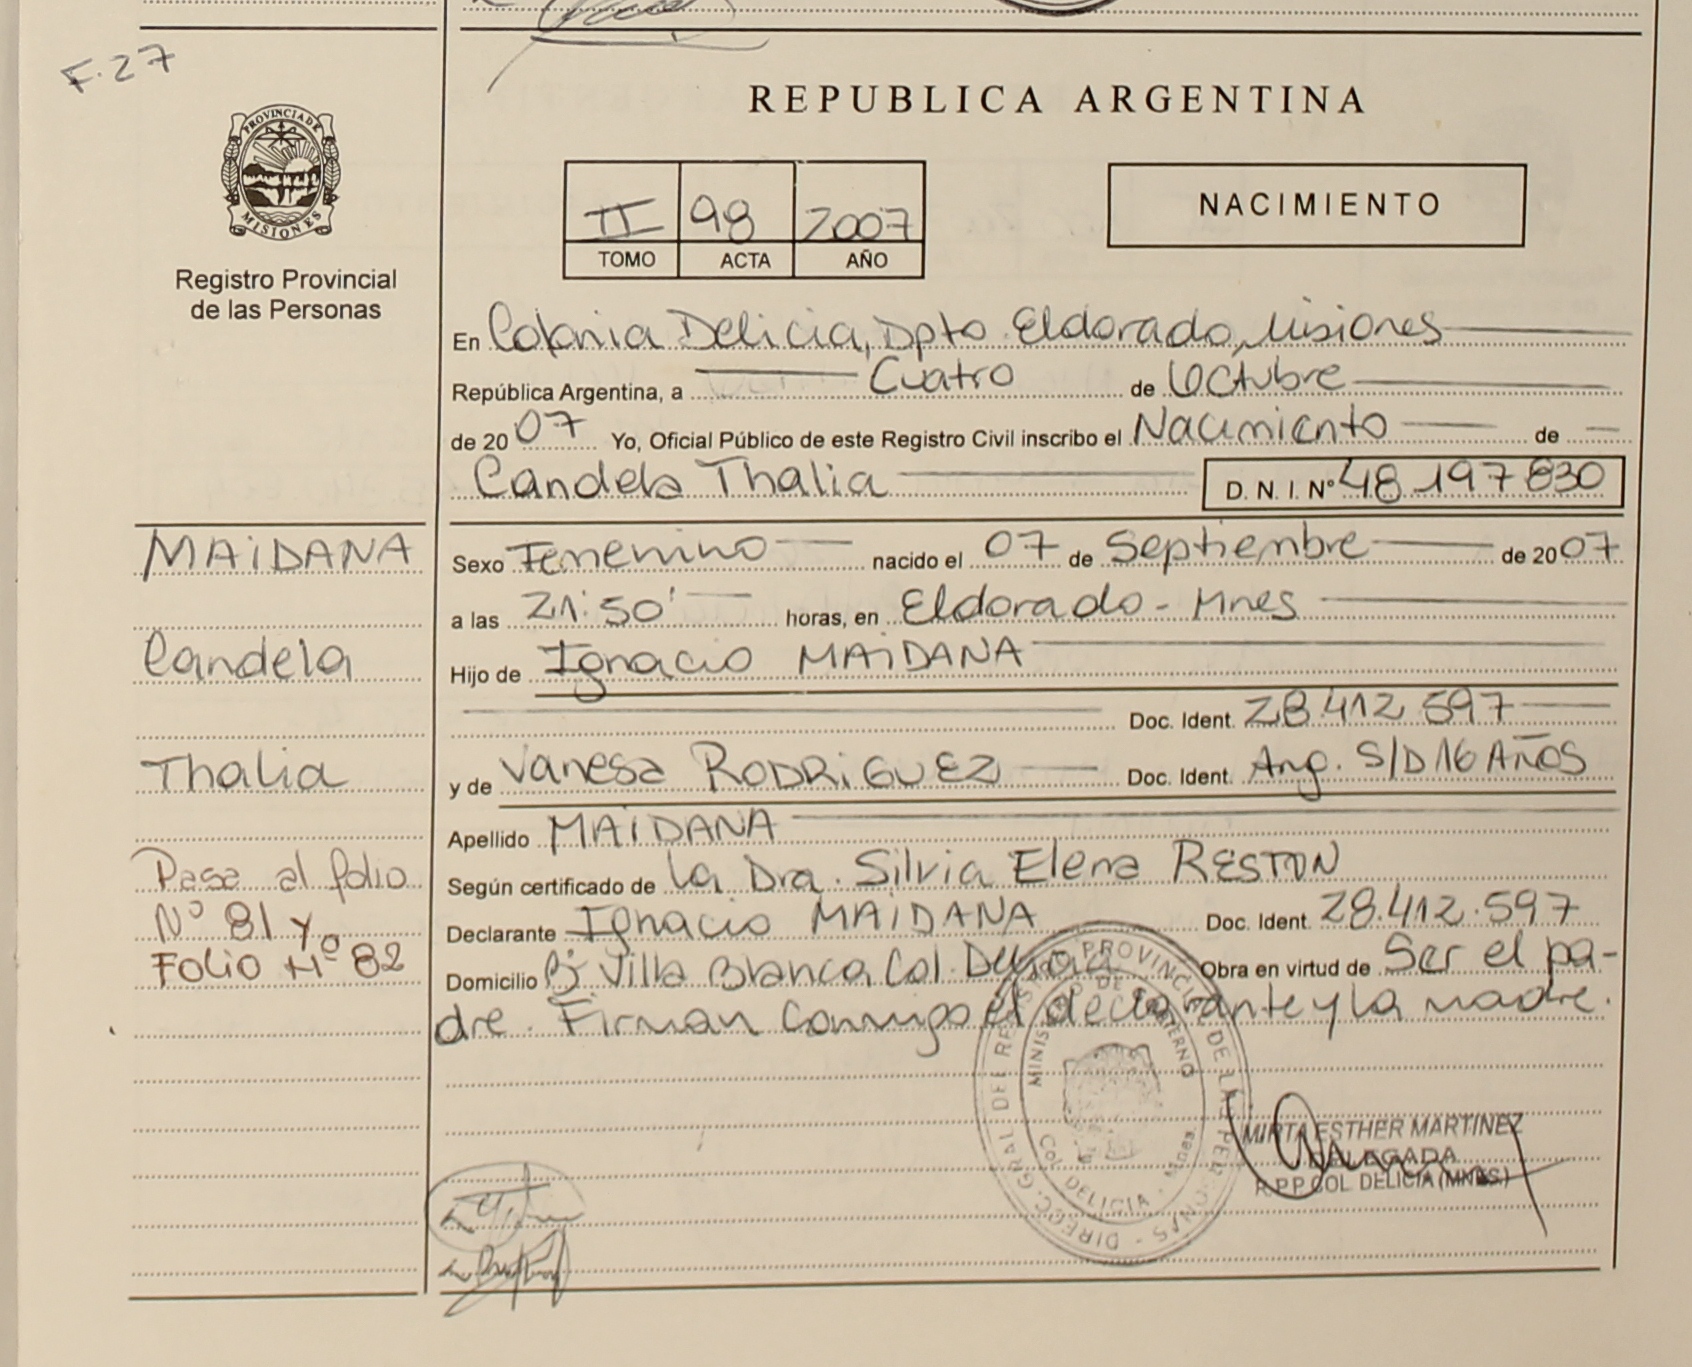 F.27
PROVINCIA DE
MISIONES
Registro Provincial
de las Personas
REPUBLICA ARGENTINA
II 98 2007
TOMO ACTA AÑO
NACIMIENTO
En Colonia Delicia, Dpto Eldorado, Misiones
República Argentina, a Cuatro de Octubre
de 2007 Yo, Oficial Público de este Registro Civil inscribo el Nacimiento de
Candela Thalia D. N. I. Nº 48.197.830
MAiDANA
Candela
Thalia
Pasa al folio
Nº 81 y
Folio Nº 82
Sexo Femenino nacido el 07 de Septiembre de 2007
a las 21:50' horas, en Eldorado - Mnes
Hijo de Ignacio MAiDANA
Doc. Ident. 28.412.597
y de Vanesa RODRiGUEZ Doc. Ident. Arg. S/D 16 AÑOS
Apellido MAiDANA
Según certificado de la Dra. Silvia Elena RESTON
Declarante Ignacio MAiDANA Doc. Ident. 28.412.597
Domicilio Bº Villa Blanca, Col. Delicia Obra en virtud de Ser el pa-
dre. Firman conmigo el declarante y la madre.
DIRECC. GRAL DEL REGISTRO PROVINCIAL DE LAS PERSONAS
MINISTERIO DE GOBIERNO
COL. DELICIA - Mnes.
MIRTA ESTHER MARTINEZ
DELEGADA
R.P.P. COL. DELICIA (MNES.)